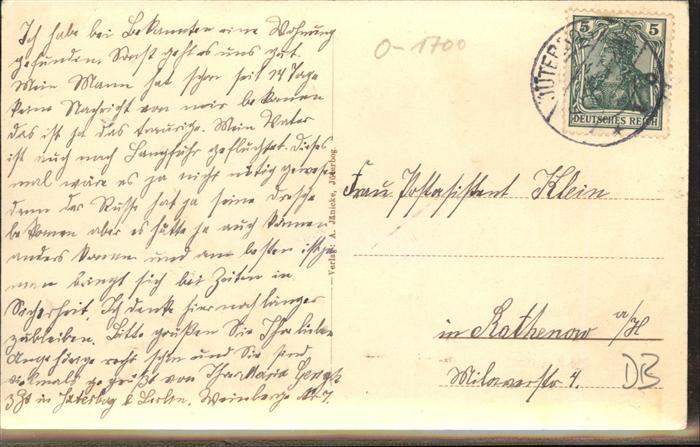 Ich habe bei Bekannten eine Wohnung
gefunden. Sonst geht es uns gut.
Mein Mann hat schon seit 14 Tage
keine Nachricht von mir bekomen
das ist ja das traurige. Mein Vater
ist auch nach Langfuhr geflüchtet. Dieses
mal wäre es ja nicht nötig gewesen
denn der Russe hat ja seine Dresche
bekomen aber es hätte ja auch können
anders komen und am besten ist
man bringt sich bei Zeiten in
Sicherheit. Ich denke hier noch länger
zubleiben. Bitte grüßen Sie Ihre lieben
Angehörige recht schön und Sie sind
vielmals gegrüßt von Ihrer Maria
3 Zt in Jüterbog b Berlin. Weinberge No 7.
0-1700
JÜTERBOG
5 5
DEUTSCHES REICH
Verlag: A. Jänicke, Jüterbog.
Frau Postasistent Klein
in Rathenow a/H
Milowerstr 4.
DB